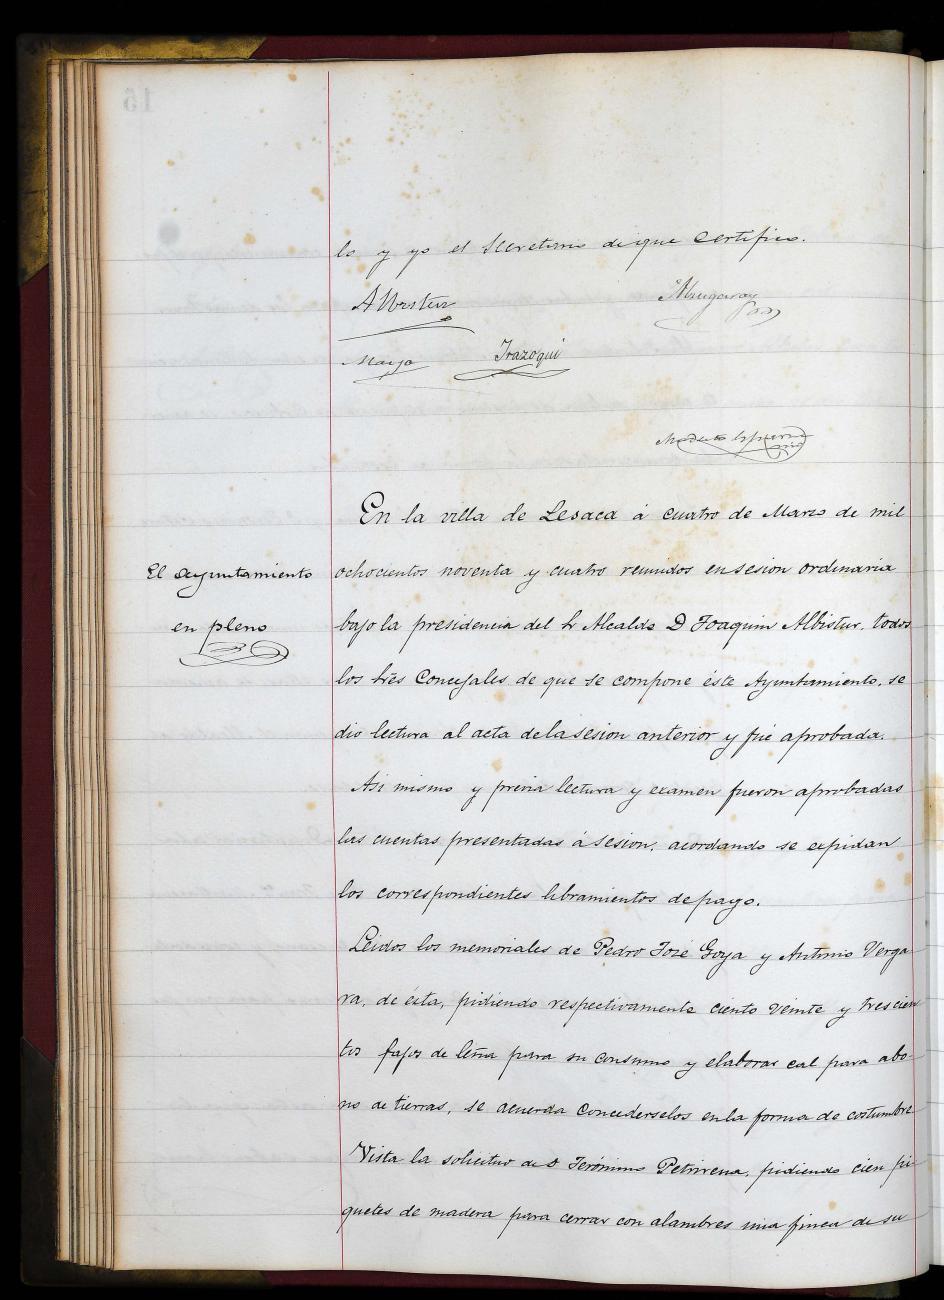 lo y yo el Secretario de que certifico.
Albistur
Maya Irazoqui
En la villa de Lesaca á cuatro de Marzo de mil
El Ayuntamiento
en pleno
ochocientos noventa y cuatro reunidos en sesion ordinaria
bajo la presidencia del Sr Alcalde D Joaquin Albistur, todos
los Sres Concejales de que se compone éste Ayuntamiento, se
dio lectura al acta de la sesion anterior y fué aprobada.
Asi mismo y previa lectura y examen fueron aprobadas
las cuentas presentadas á sesion, acordando se expidan
los correspondientes libramientos de pago.
Leidos los memoriales de Pedro José Goya y Antonio Verga
ra, de ésta, pidiendo respectivamente ciento veinte y trescien
tos fajos de leña para su consumo y elaborar cal para abo-
no de tierras, se acuerda concederselos en la forma de costumbre
Vista la solicitud de D Jerónimo Petrirena, pidiendo cien pi-
quetes de madera para cerrar con alambres una finca de su